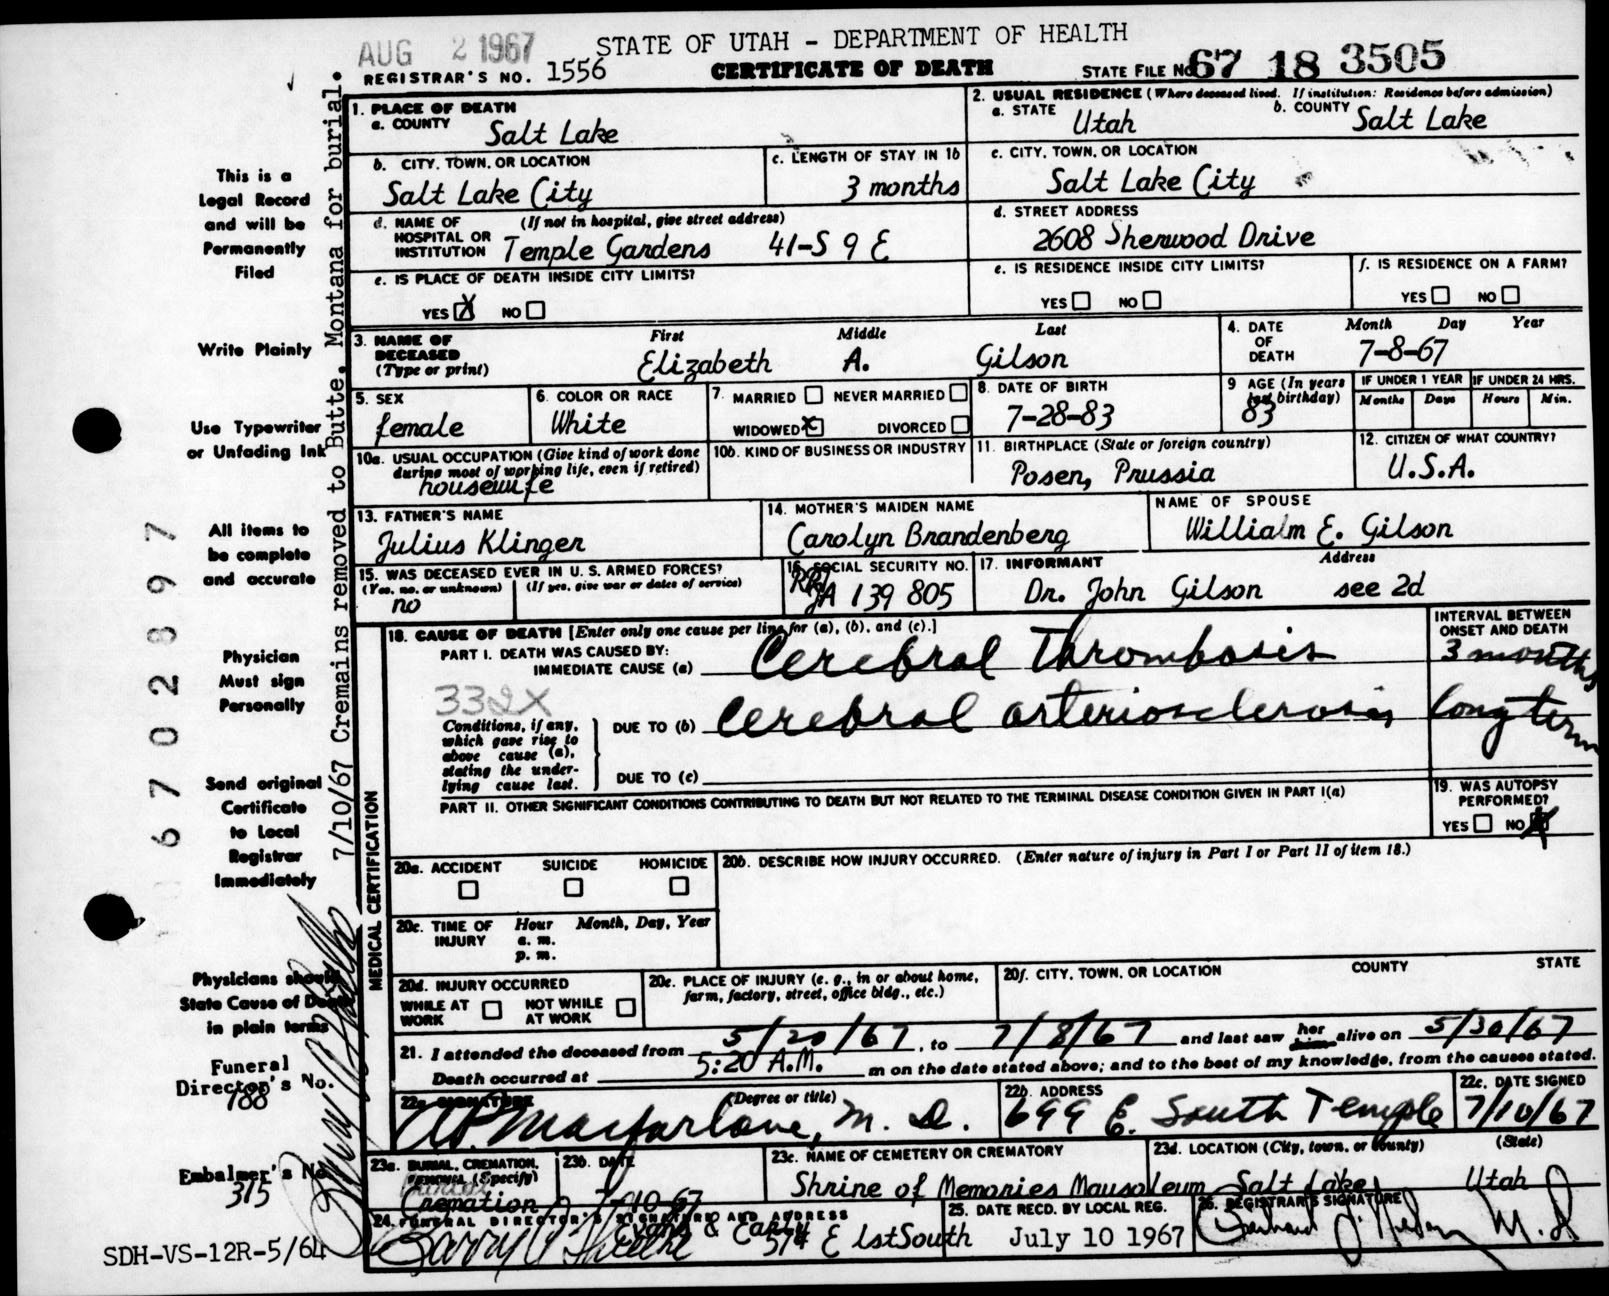 AUG 2 1967
STATE OF UTAH - DEPARTMENT OF HEALTH
REGISTRAR'S NO. 1556
CERTIFICATE OF DEATH
STATE FILE NO. 67 18 3505
1. PLACE OF DEATH
a. COUNTY Salt Lake
2. USUAL RESIDENCE (Where deceased lived. If institution: Residence before admission)
a. STATE Utah b. COUNTY Salt Lake
b. CITY, TOWN, OR LOCATION
Salt Lake City
c. LENGTH OF STAY IN 1b
3 months
c. CITY, TOWN, OR LOCATION
Salt Lake City
d. NAME OF HOSPITAL OR INSTITUTION (If not in hospital, give street address)
Temple Gardens 41-S 9 E
d. STREET ADDRESS
2608 Sherwood Drive
e. IS PLACE OF DEATH INSIDE CITY LIMITS?
YES X NO
e. IS RESIDENCE INSIDE CITY LIMITS?
YES NO
f. IS RESIDENCE ON A FARM?
YES NO
3. NAME OF DECEASED (Type or print)
First Middle Last
Elizabeth A. Gilson
4. DATE OF DEATH Month Day Year
7-8-67
5. SEX
female
6. COLOR OR RACE
White
7. MARRIED NEVER MARRIED
WIDOWED X DIVORCED
8. DATE OF BIRTH
7-28-83
9 AGE (In years last birthday)
83
IF UNDER 1 YEAR IF UNDER 24 HRS.
Months Days Hours Min.
10a. USUAL OCCUPATION (Give kind of work done during most of working life, even if retired)
housewife
10b. KIND OF BUSINESS OR INDUSTRY
11. BIRTHPLACE (State or foreign country)
Posen, Prussia
12. CITIZEN OF WHAT COUNTRY?
U.S.A.
13. FATHER'S NAME
Julius Klinger
14. MOTHER'S MAIDEN NAME
Carolyn Brandenberg
NAME OF SPOUSE
Willialm E. Gilson
15. WAS DECEASED EVER IN U. S. ARMED FORCES?
(Yes, no, or unknown) (If yes, give war or dates of service)
no
16. SOCIAL SECURITY NO.
RR/ JA 139 805
17. INFORMANT Address
Dr. John Gilson see 2d
MEDICAL CERTIFICATION
18. CAUSE OF DEATH [Enter only one cause per line for (a), (b), and (c).]
INTERVAL BETWEEN ONSET AND DEATH
PART I. DEATH WAS CAUSED BY:
IMMEDIATE CAUSE (a) Cerebral Thrombosis 3 months
332X
Conditions, if any, which gave rise to above cause (a), stating the underlying cause last.
DUE TO (b) Cerebral arteriosclerosis long term
DUE TO (c)
PART II. OTHER SIGNIFICANT CONDITIONS CONTRIBUTING TO DEATH BUT NOT RELATED TO THE TERMINAL DISEASE CONDITION GIVEN IN PART I(a)
19. WAS AUTOPSY PERFORMED?
YES NO X
20a. ACCIDENT SUICIDE HOMICIDE
20b. DESCRIBE HOW INJURY OCCURRED. (Enter nature of injury in Part I or Part II of item 18.)
20c. TIME OF INJURY Hour Month, Day, Year
a. m.
p. m.
20d. INJURY OCCURRED
WHILE AT WORK NOT WHILE AT WORK
20e. PLACE OF INJURY (e. g., in or about home, farm, factory, street, office bldg., etc.)
20f. CITY, TOWN, OR LOCATION COUNTY STATE
21. I attended the deceased from 5/20/67, to 7/8/67 and last saw her him alive on 5/30/67
Death occurred at 5:20 A.M. m on the date stated above; and to the best of my knowledge, from the causes stated.
22a. SIGNATURE (Degree or title)
Macfarlane, M. D.
22b. ADDRESS
699 E. South Temple
22c. DATE SIGNED
7/10/67
23a. BURIAL, CREMATION, REMOVAL (Specify)
Cremation
23b. DATE
7-10-67
23c. NAME OF CEMETERY OR CREMATORY
Shrine of Memories Mausoleum
23d. LOCATION (City, town, or county) (State)
Salt Lake Utah
24. FUNERAL DIRECTOR'S SIGNATURE AND ADDRESS
Evans & Early
574 E 1stSouth
25. DATE RECD. BY LOCAL REG.
July 10 1967
26. REGISTRAR'S SIGNATURE
M.D
This is a
Legal Record
and will be
Permanently
Filed
Write Plainly
Use Typewriter
or Unfading Ink
All items to
be complete
and accurate
Physician
Must sign
Personally
Send original
Certificate
to Local
Registrar
Immediately
Physicians should
State Cause of Death
in plain terms
Funeral
Director's No.
788
Embalmer's No.
315
SDH-VS-12R-5/64
6702897
7/10/67 Cremains removed to Butte, Montana for burial.